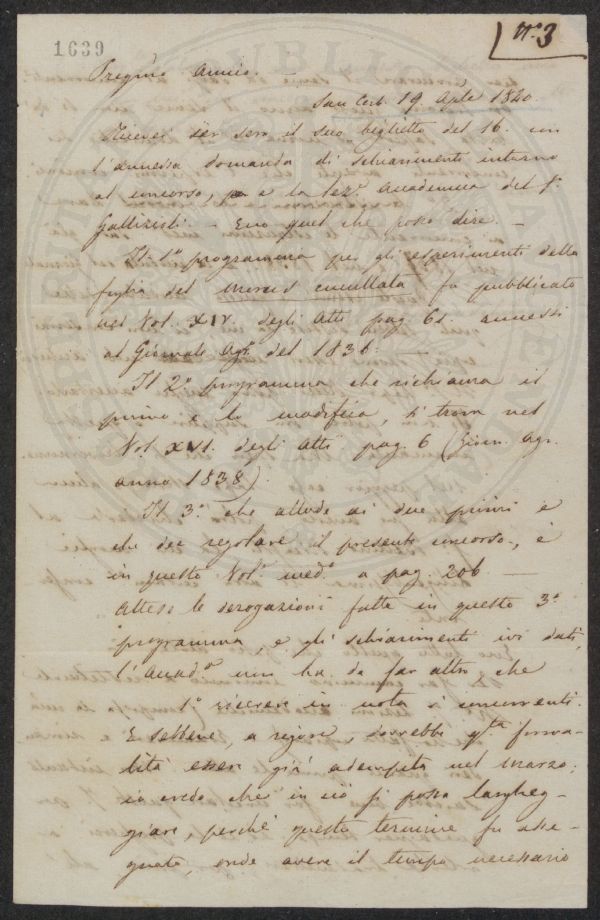 1639
N.º 3
Pregmo Amico. —
San Cerb. 19 Aple 1840.
Ricevei ier sera il suo biglietto del 16. con
l'annessa domanda di schiarimenti intorno
al concorso, la Accademica dei
— Ecco quel che posso dire —
Il 1º programma per gli esperimenti della
del cucullata fu pubblicato
nel Vol. XIV. degli Atti pag 61. annessi
al Giornale Agr. del 1836. —
Il 2º programma che richiama il
primo e lo modifica, si trova nel
Vol. XVI. degli Atti pag. 6 (Giorn. Agr.
anno 1838).
Il 3º che allude ai due primi e
che dee regolare il presente concorso, è
in questo Vol. medº a pag. 206 —
Attese le derogazioni fatte in questo 3º
programma, e gli schiarimenti ivi dati,
l'Accadª non ha da far altro, che
1º ricevere in nota i concorrenti.
E sebbene, a rigore, dovrebbe qta forma-
lità esser già adempita nel Marzo;
io credo che in ciò si possa largheg-
giare, perchè questo termine fu asse-
gnato, onde avere il tempo necessario